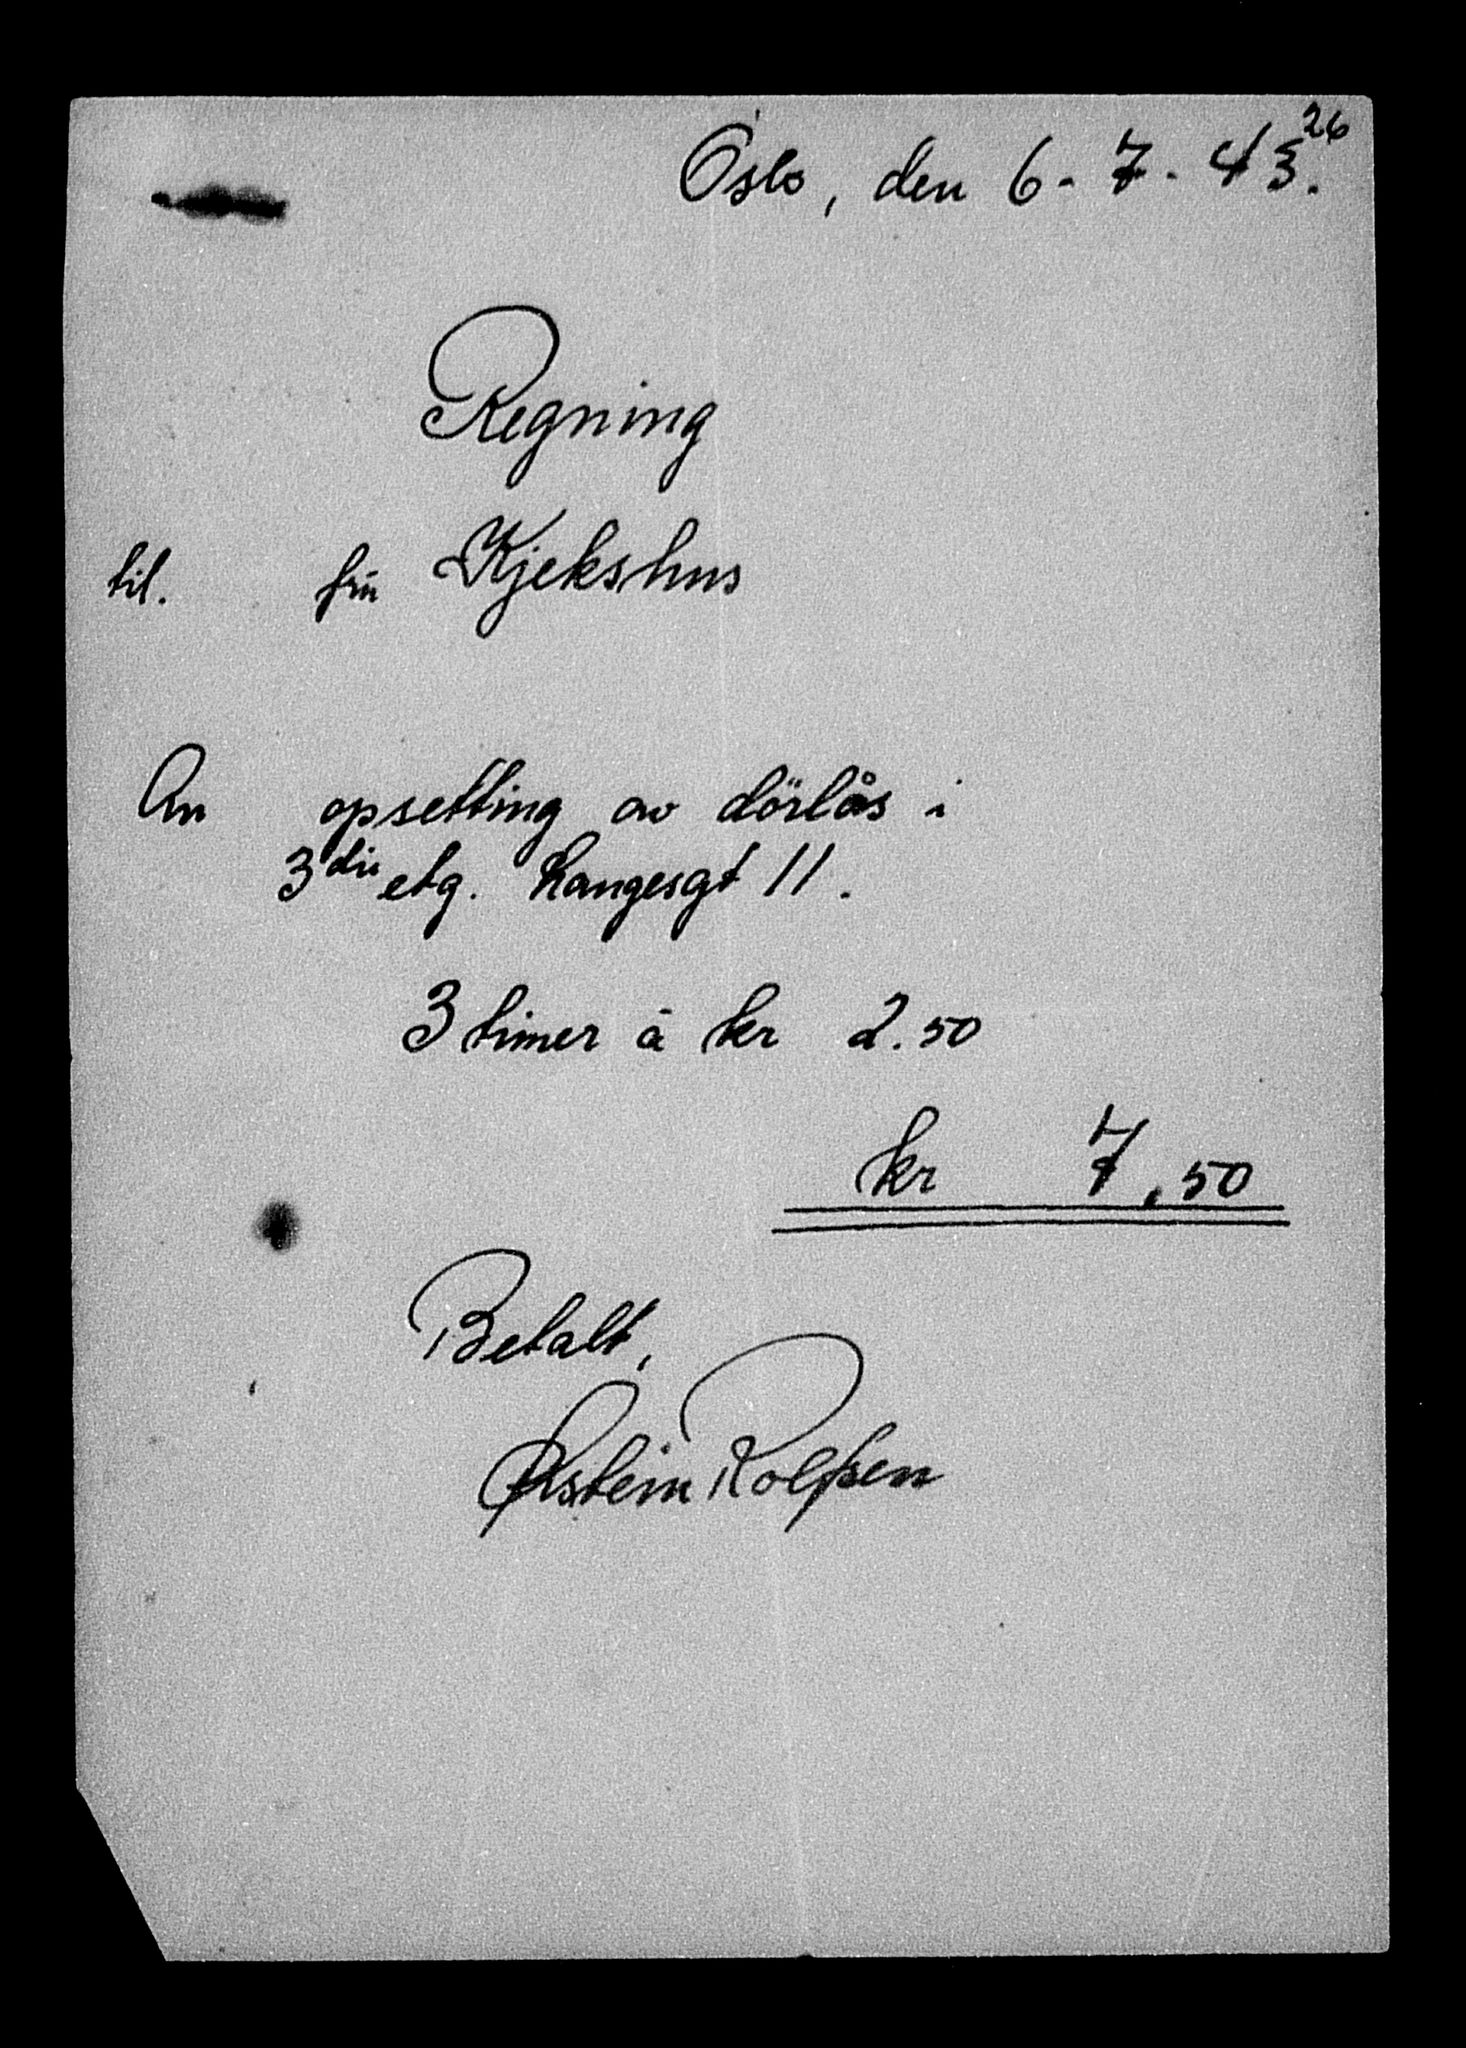 26
Oslo, den 6-7-43.
Regning
til. fru Kjekshus
An opsetting av dörlås i
3die etg. Langesgt 11.
3 timer á kr 2.50
kr 7,50
Betalt,
Østein Rolfsen